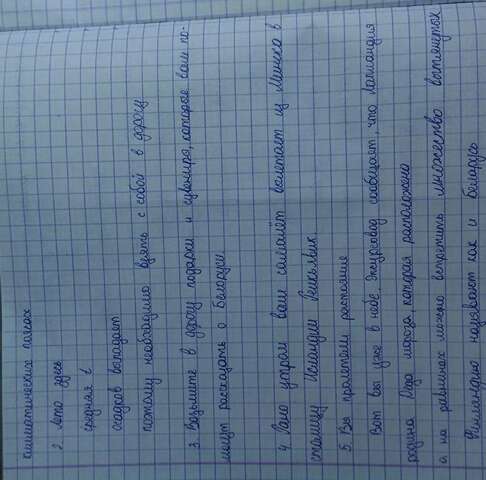 климатических поясах
2. Лето здесь
средняя t
осадков выпадает
поэтому необходимо взять с собой в дорогу
3. Возьмите в дорогу подарки и сувениры, которые вам по-
могут рассказать о Беларуси
4. Рано утром ваш самолёт вылетает из Минска в
столицу Исландии Рейкьявик
5. Вы пролетели расстояние
Вот вы уже в небе. Экскурсовод сообщает, что Лапландия
родина Деда мороза которая расположена
а на равнинах можно встретить множество вытянутых
Финляндию называют как и Беларусь